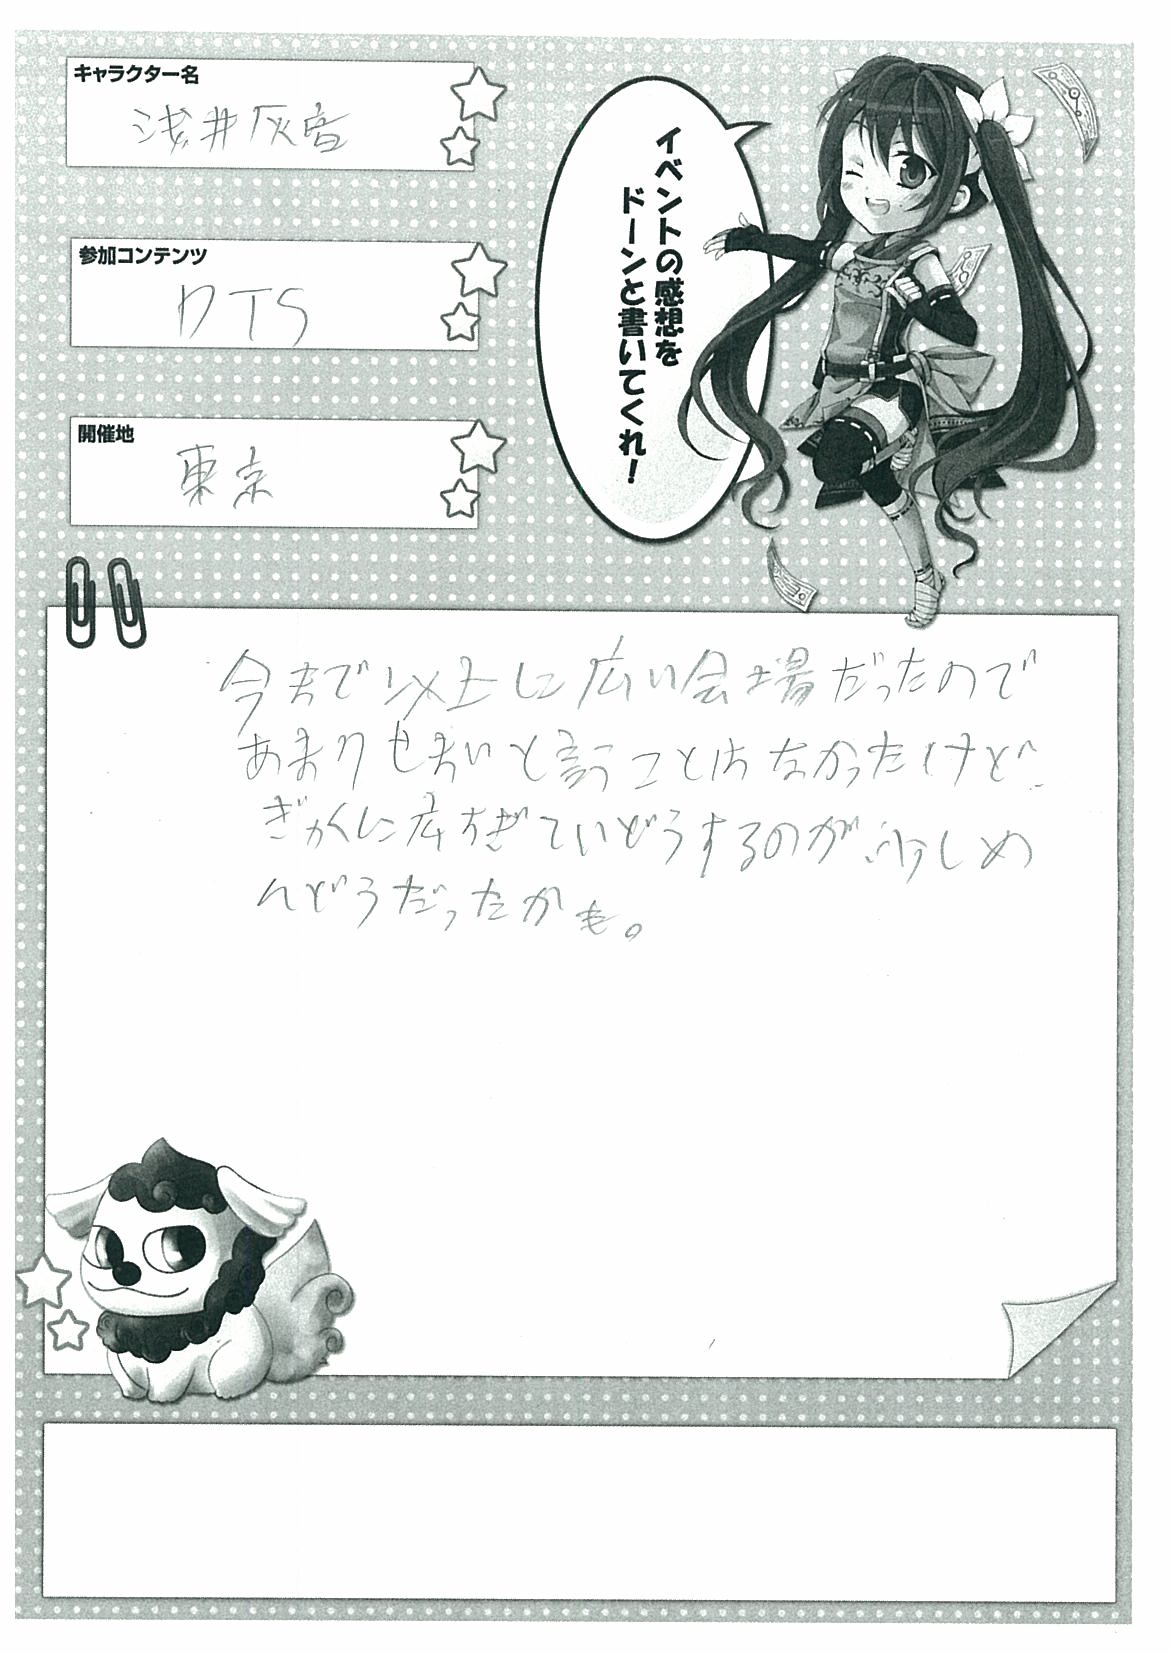 キャラクター名
浅井灰音
参加コンテンツ
DTS
開催地
東京
イベントの感想を
ドーンと書いてくれ!
今まで以上に広い会場だったので
あまりせまいと言うことはなかったけど
ぎゃくに広すぎていどうするのが少しめ
んどうだったかも。